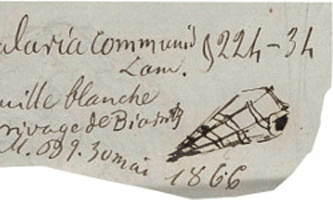 alaria communis § 224-34
Lam.
uille blanche
rivage de Biarritz
30 mai 1866